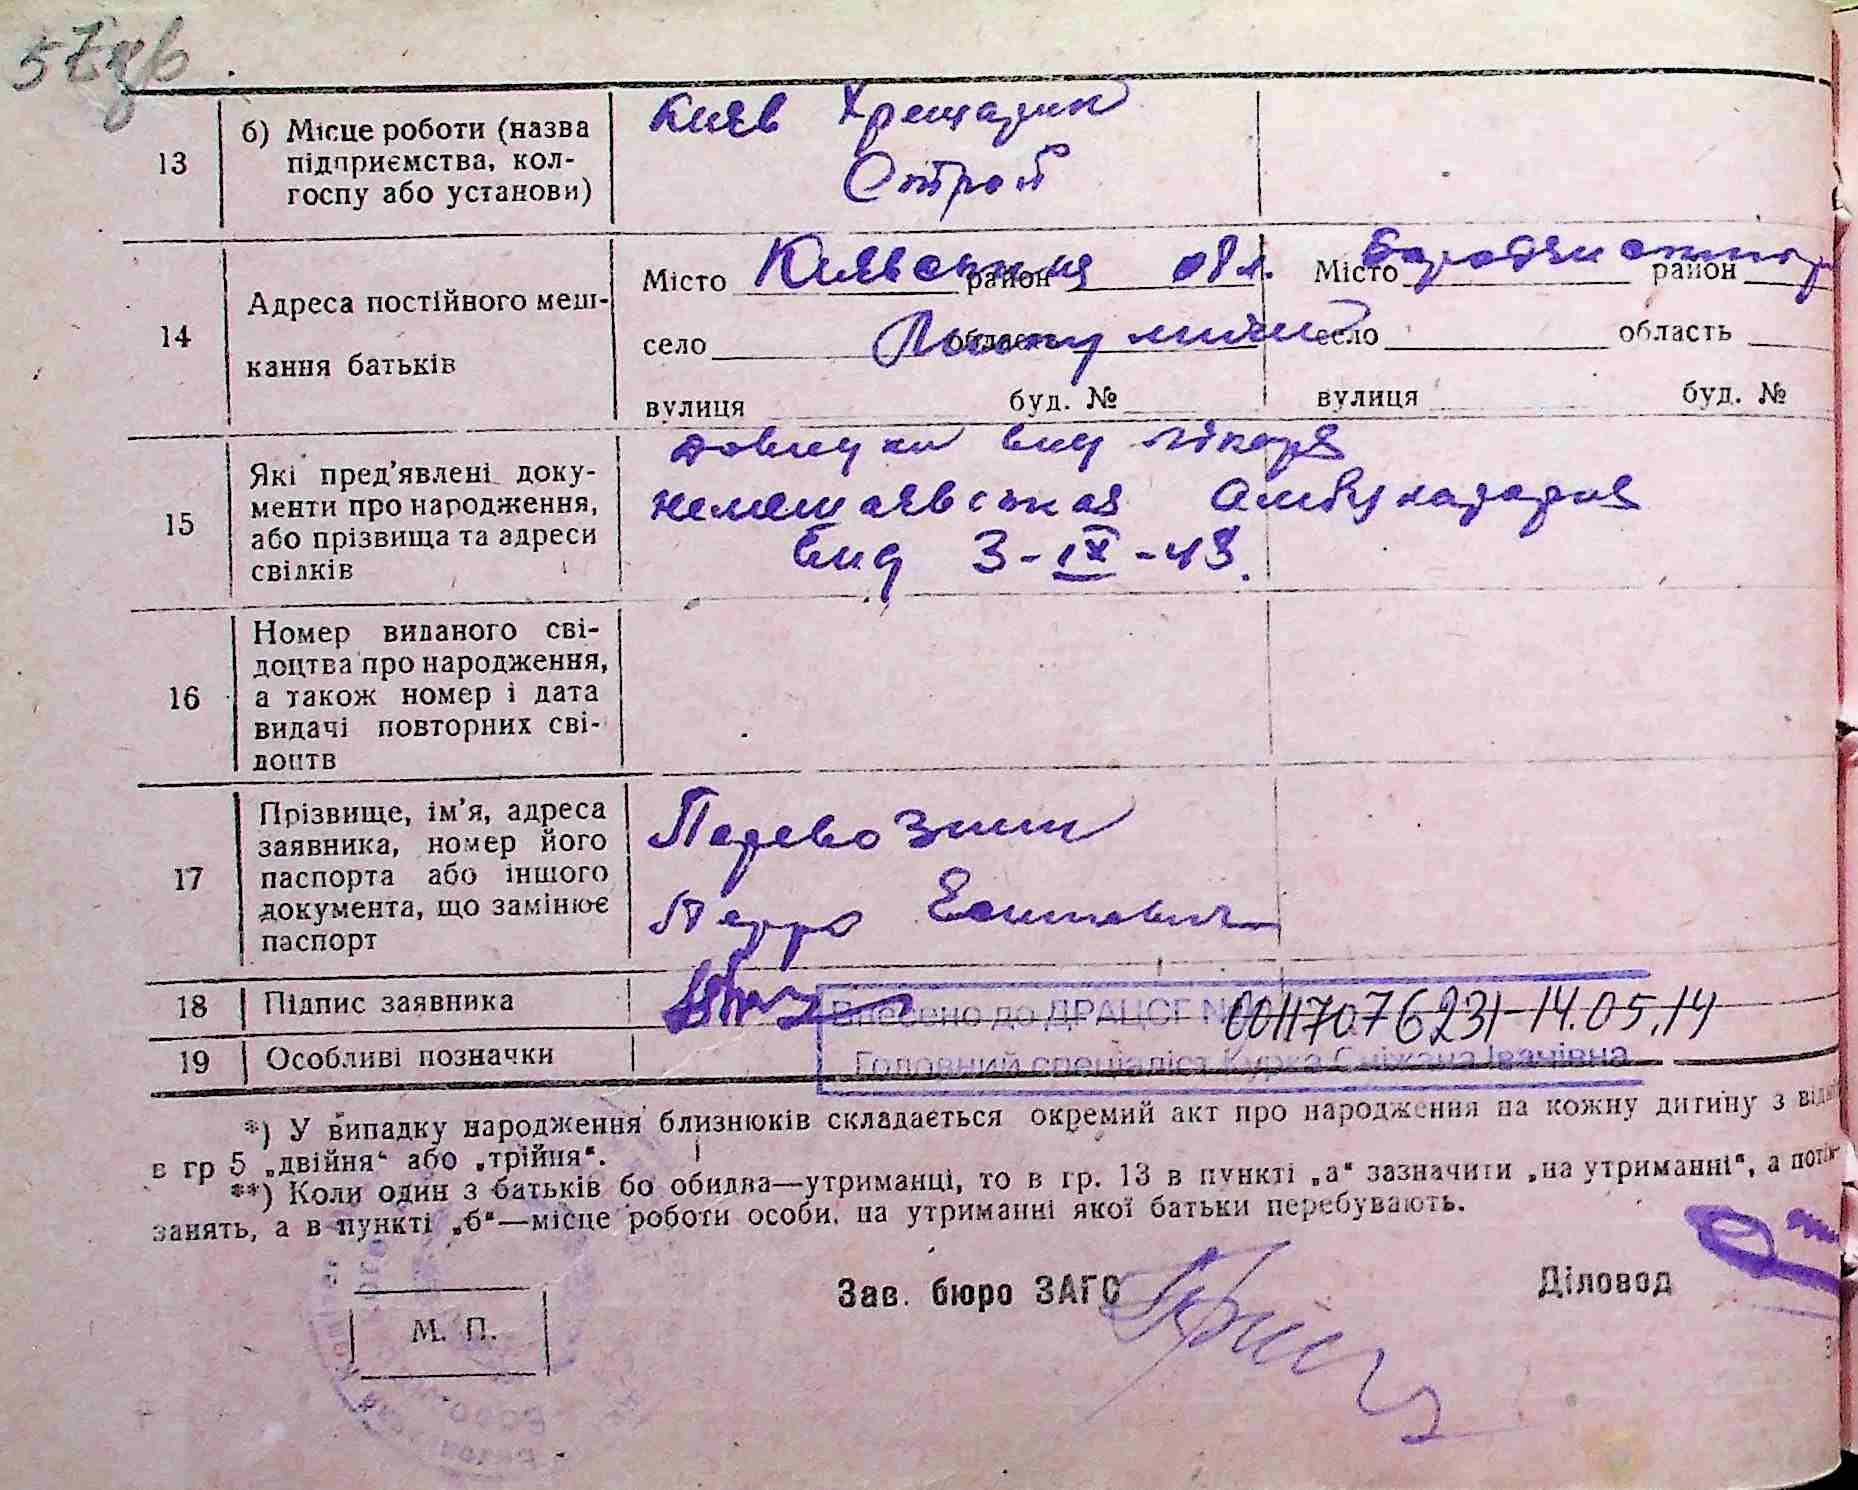 57
13
б) Місце роботи (назва
підприємства, кол-
госпу або установи)
Киев Хрещатик
Строй
14
Адреса постійного меш-
кання батьків
Місто Киевська район обл.
село область
вулиця буд. №
Місто район
село область
вулиця буд. №
15
Які пред'явлені доку-
менти про народження,
або прізвища та адреси
свідків
довідка від лікаря
Немешаевська Амбулаторія
від 3-IX-43.
16
Номер виданого сві-
доцтва про народження,
а також номер і дата
видачі повторних сві-
доцтв
17
Прізвище, ім'я, адреса
заявника, номер його
паспорта або іншого
документа, що замінює
паспорт
Перевозник
Петро
18
Підпис заявника
Внесено до ДРАЦСГ № 00117076231-14.05.14
19
Особливі позначки
Головний спеціаліст Куржа Сніжана Іванівна
*) У випадку народження близнюків складається окремий акт про народження на кожну дитину з
в гр 5 „двійня“ або „трійня“.
**) Коли один з батьків бо обидва—утриманці, то в гр. 13 в пункті „а“ зазначити „на утриманні“, а
занять, а в пункті „б“—місце роботи особи, на утриманні якої батьки перебувають.
М. П.
Зав. бюро ЗАГС
Діловод